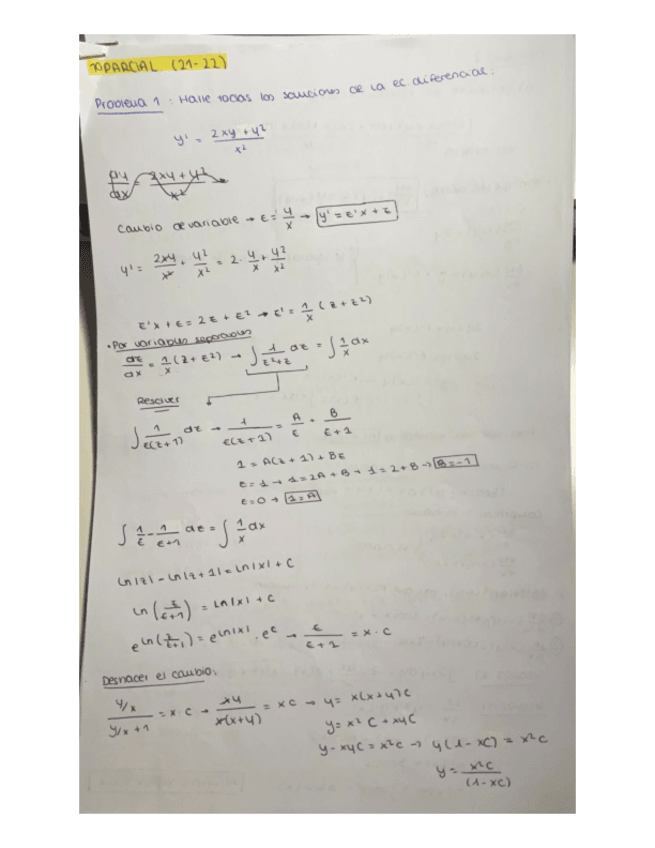 PARCIAL (21-22)
Problema 1 : Halle todas las soluciones de la ec diferencial:
y' = 2xy + y² / x²
dy/dx = 2xy + y² / x²
Cambio de variable → z = y/x → y' = z'x + z
y' = 2xy/x² + y²/x² = 2 · y/x + y²/x²
z'x + z = 2z + z² → z' = 1/x (z + z²)
• Por variables separables
dz/dx = 1/x (z + z²) → ∫ 1/z²+z dz = ∫ 1/x dx
Resolver
∫ 1/z(z+1) dz → 1/z(z+1) = A/z + B/z+1
1 = A(z+1) + Bz
z = 1 → 1 = 2A + B → 1 = 2 + B → B = -1
z = 0 → 1 = A
∫ 1/z - 1/z+1 dz = ∫ 1/x dx
ln|z| - ln|z+1| = ln|x| + C
ln (z/z+1) = ln|x| + C
e^ln(z/z+1) = e^ln|x| · e^c → z/z+1 = x · C
Deshacer el cambio:
y/x / y/x + 1 = x C → xy / x(x+y) = x C → y = x(x+y)C
y = x² C + xyC
y - xyC = x²C → y(1 - xC) = x²C
y = x²C / (1 - xC)